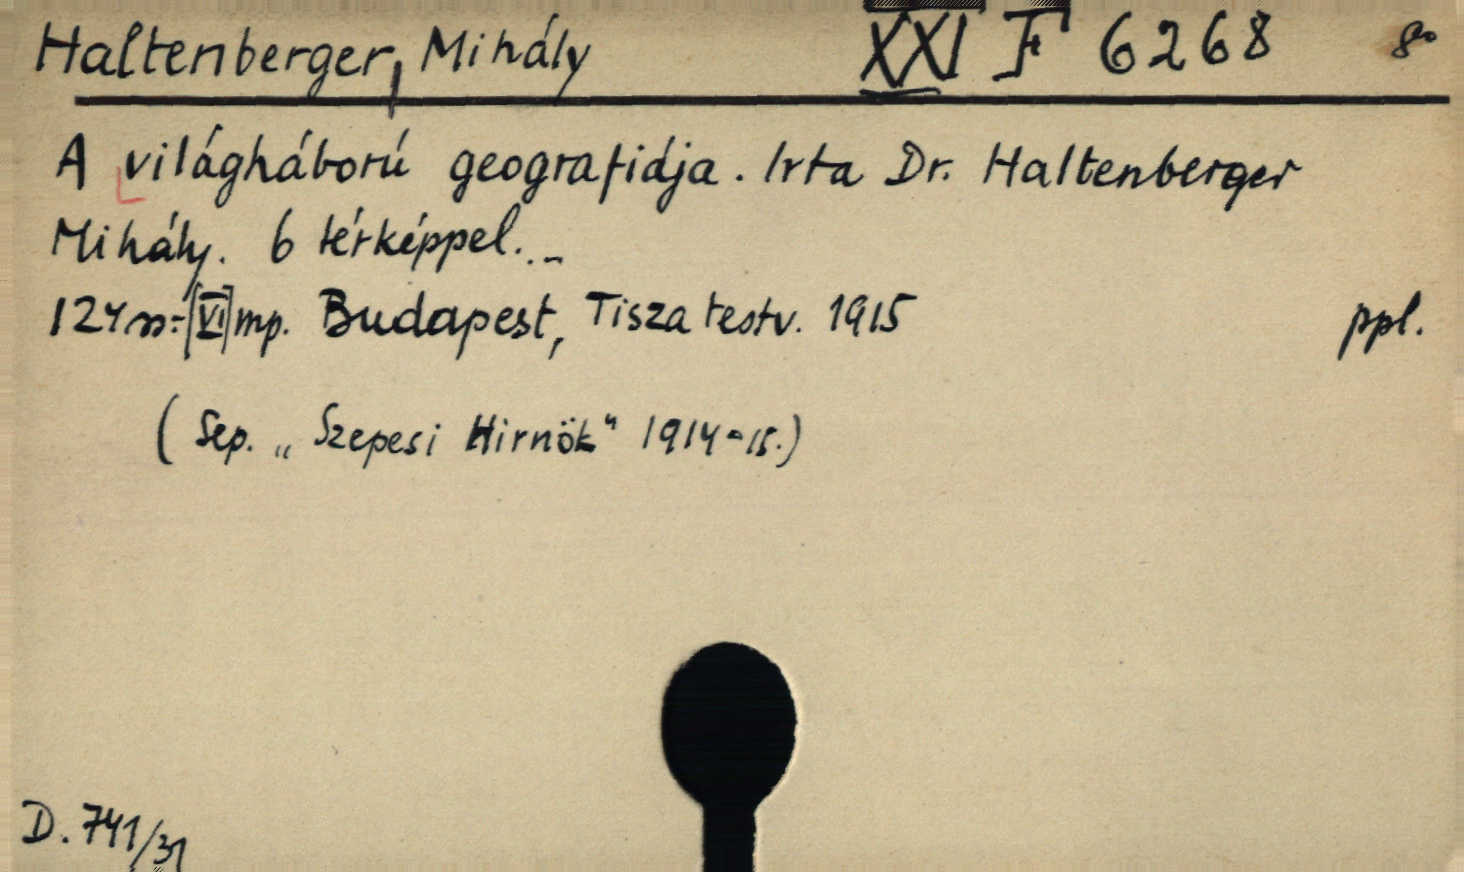 Haltenberger, Mihály XXI F 6268 8°
A világháború geografiája. Irta Dr. Haltenberger
Mihály. 6 térképpel. –
124 n. [VI] mp. Budapest, Tisza testv. 1915 ppl.
(Sep. „Szepesi Hirnök" 1914-15.)
D. 741/31